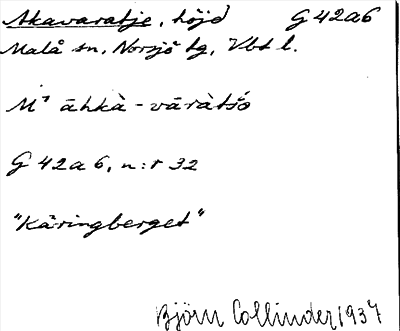 Akavaratje, höjd G 42a6
Malå sn, Norsjö tg, Vbt l.
M¹ āhkà - vāràtšo
G 42a 6, n:r 32
"Käringberget"
Björn Collinder 1937